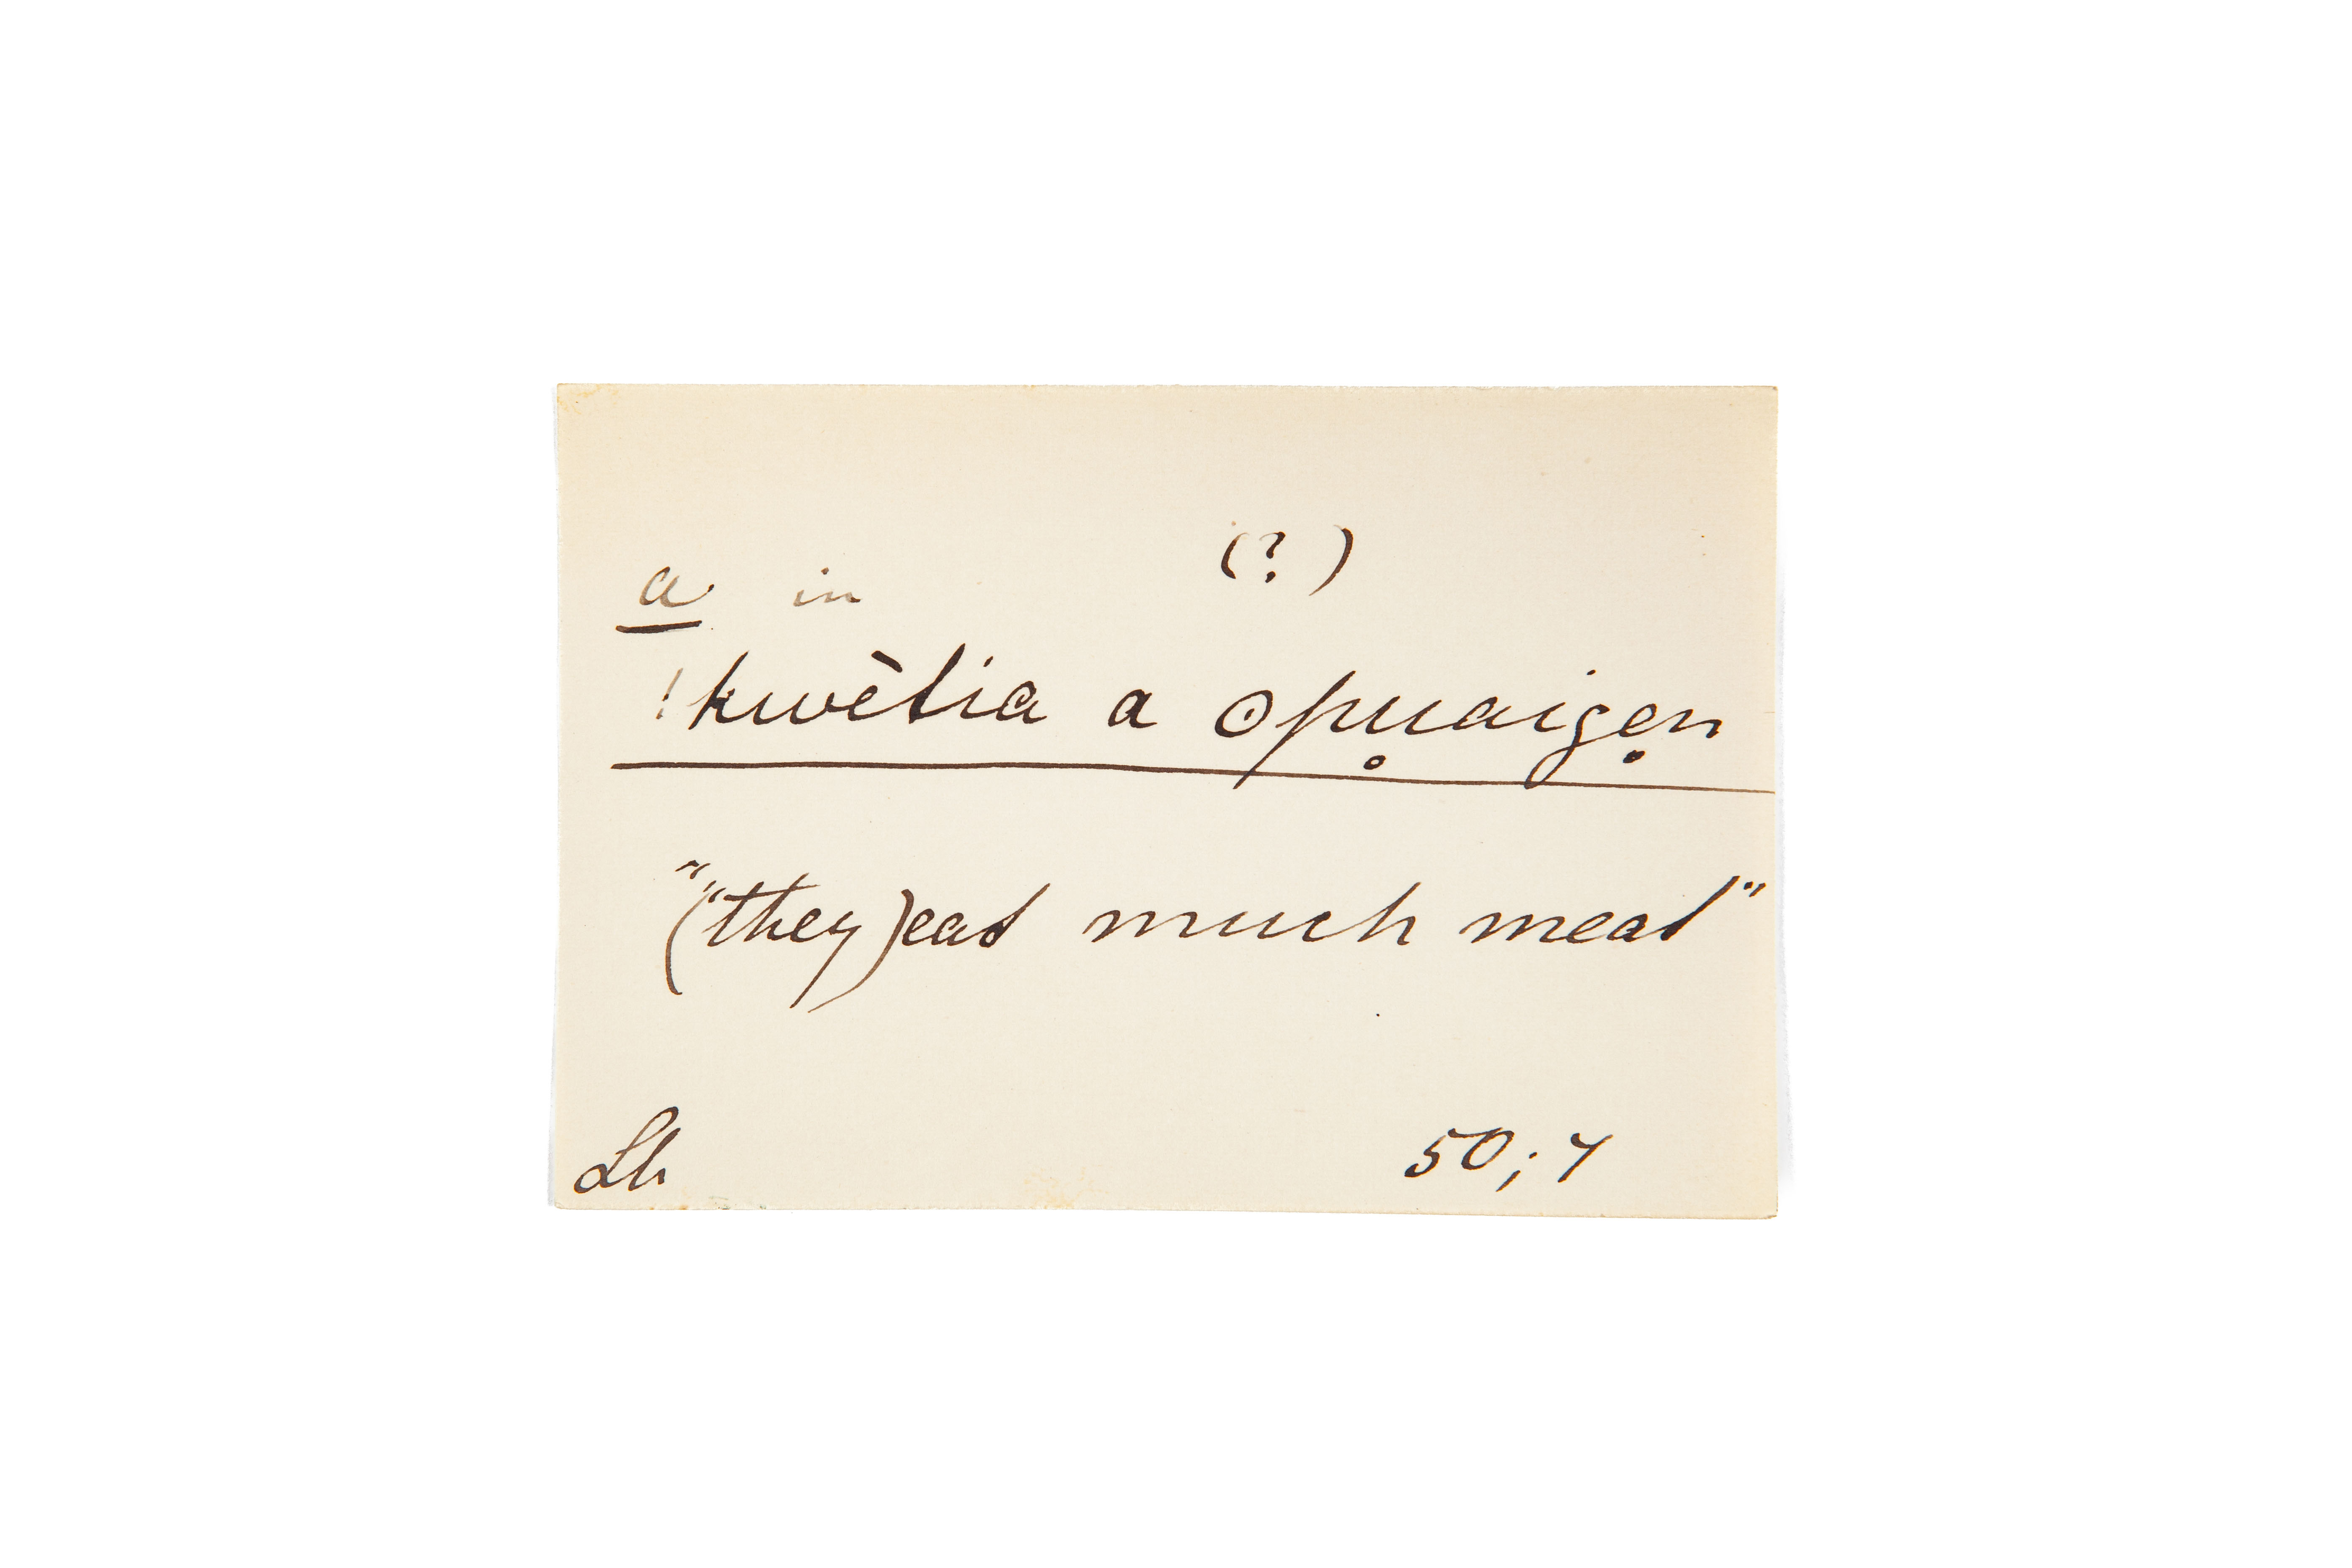 (?)
a in
!kwètia a ʘpu̥aigẹn
"(they) eat much meat"
Lb 50; 7